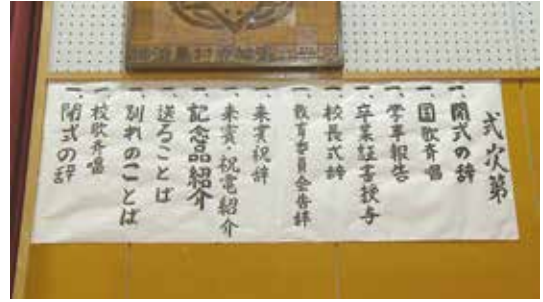 式次第
一、開式の辞
一、国歌斉唱
一、学事報告
一、卒業証書授与
一、校長式辞
一、教育委員会告辞
一、来賓祝辞
一、来賓・祝電紹介
一、記念品紹介
一、送ることば
一、別れのことば
一、校歌斉唱
一、閉式の辞